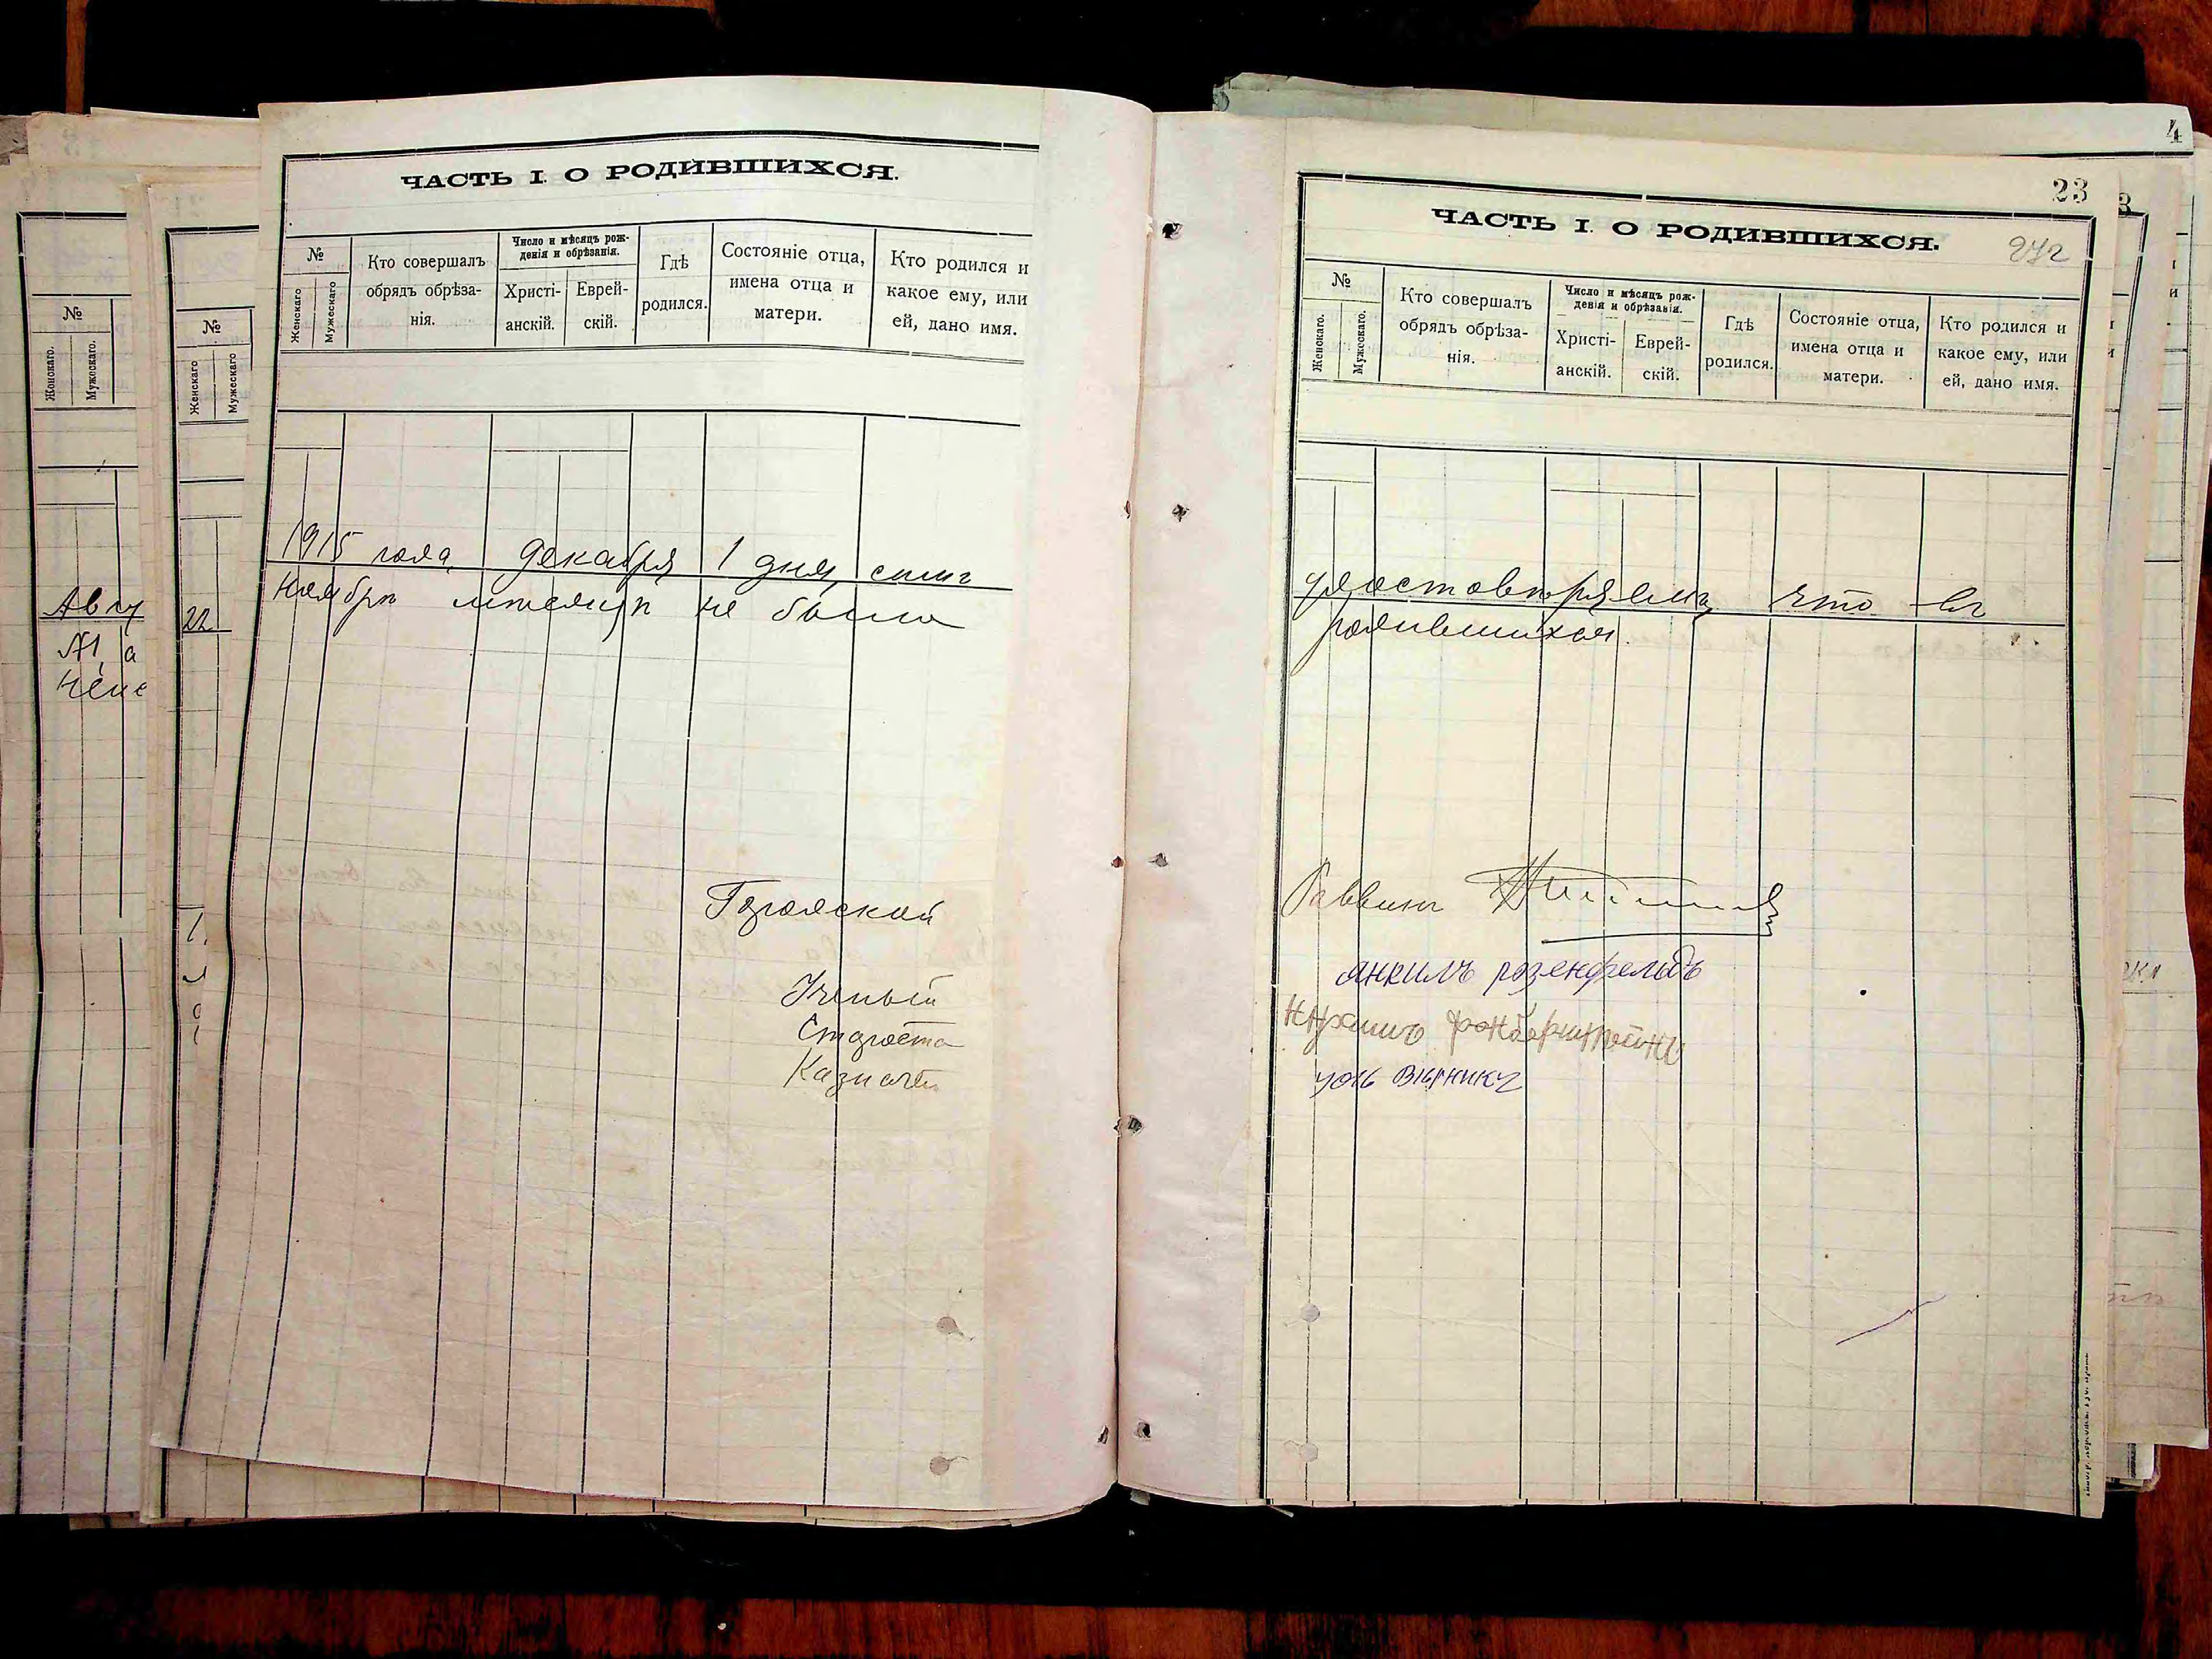 4
23
272
ЧАСТЬ I. О РОДИВШИХСЯ.
№
Женскаго
Мужескаго
Кто совершалъ обрядъ обрѣза-
нія.
Число и мѣсяцъ рож-
денія и обрѣзанія.
Христі-
анскій.
Еврей-
скій.
Гдѣ
родился.
Состояніе отца,
имена отца и
матери.
Кто родился и
какое ему, или
ей, дано имя.
1915 года, декабря 1 дня, симъ
ноябрѣ мѣсяцѣ не было
Городской
Ученый
Староста
Казначей
ЧАСТЬ I. О РОДИВШИХСЯ.
№
Женскаго.
Мужескаго.
Кто совершалъ
обрядъ обрѣза-
нія.
Число и мѣсяцъ рож-
денія и обрѣзанія.
Христі-
анскій.
Еврей-
скій.
Гдѣ
родился.
Состояніе отца,
имена отца и
матери.
Кто родился и
какое ему, или
ей, дано имя.
удостовѣряемъ, что въ
родившихся.
Раввинъ
Янкилъ розенфельдъ
№
Женскаго.
Мужескаго.
Авгу
№
Женскаго
Мужескаго
22